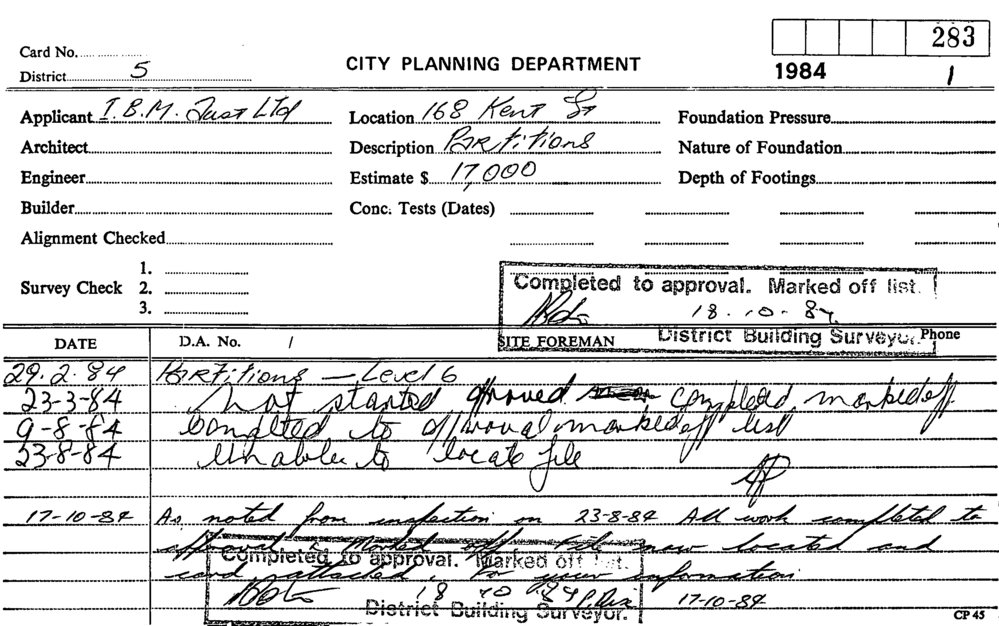 283
Card No.
District 5
CITY PLANNING DEPARTMENT
1984 1
Applicant I.B.M. Just Ltd Location 168 Kent St Foundation Pressure
Architect Description Partitions Nature of Foundation
Engineer Estimate $ 17,000 Depth of Footings
Builder Conc. Tests (Dates)
Alignment Checked
Survey Check 1.
2.
3.
Completed to approval. Marked off list.
18.10.84
District Building Surveyor.
DATE D.A. No. / SITE FOREMAN Phone
29.2.84 Partitions — Level 6
23-3-84 not started completed marked off
9-8-84 Completed to approval marked off list
23-8-84 Unable to locate file
17-10-84 As noted from inspection on 23-8-84 All work completed to
approval & Marked off. File now located and
card attached, for your information
Completed to approval. Marked off list.
18 10 84
17-10-84
District Building Surveyor.
CP 45